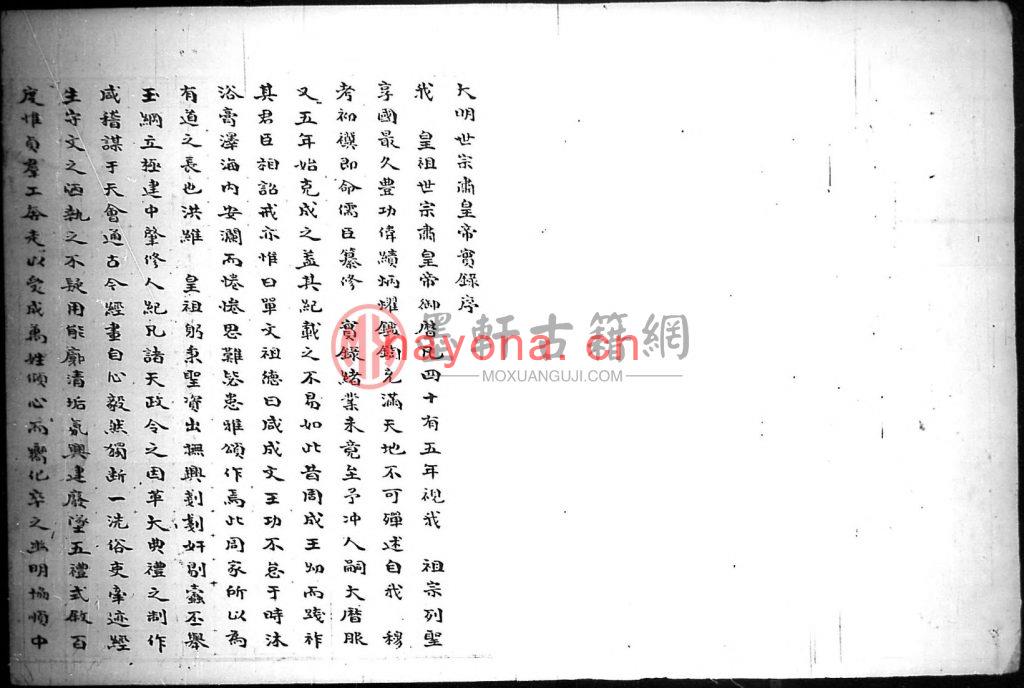 大明世宗肅皇帝實錄序
我　皇祖世宗肅皇帝御曆凡四十有五年視我　祖宗列聖
享國最久豊功偉績炳耀鏗鍧充滿天地不可殫述自我　穆
考初禩即命儒臣纂修　實錄緒業未竟至予冲人嗣大曆服
又五年始克成之蓋其紀載之不易如此昔周成王幼而踐祚
其君臣相詔戒亦惟曰單文祖德曰咸成文王功不怠于時沐
浴膏澤海内安瀾而惓惓思難毖患雅頌作焉此周家所以為
有道之長也洪雖　皇祖躬秉聖資出撫興剗劃奸剔蠹丕舉
玉綱立極建中肇修人紀凡諸天政令之因革大典禮之制作
咸稽謀于天會通古今經畫自心毅然獨斷一洗俗吏牽迹經
生守文之陋執之不疑用能廓清垢氛興建廢墜五禮式敘百
度惟貞羣工奔走以受成萬姓傾心而嚮化卒之幽明協順中
墨軒古籍網
nayona.cn
MOXUANGUJI.COM